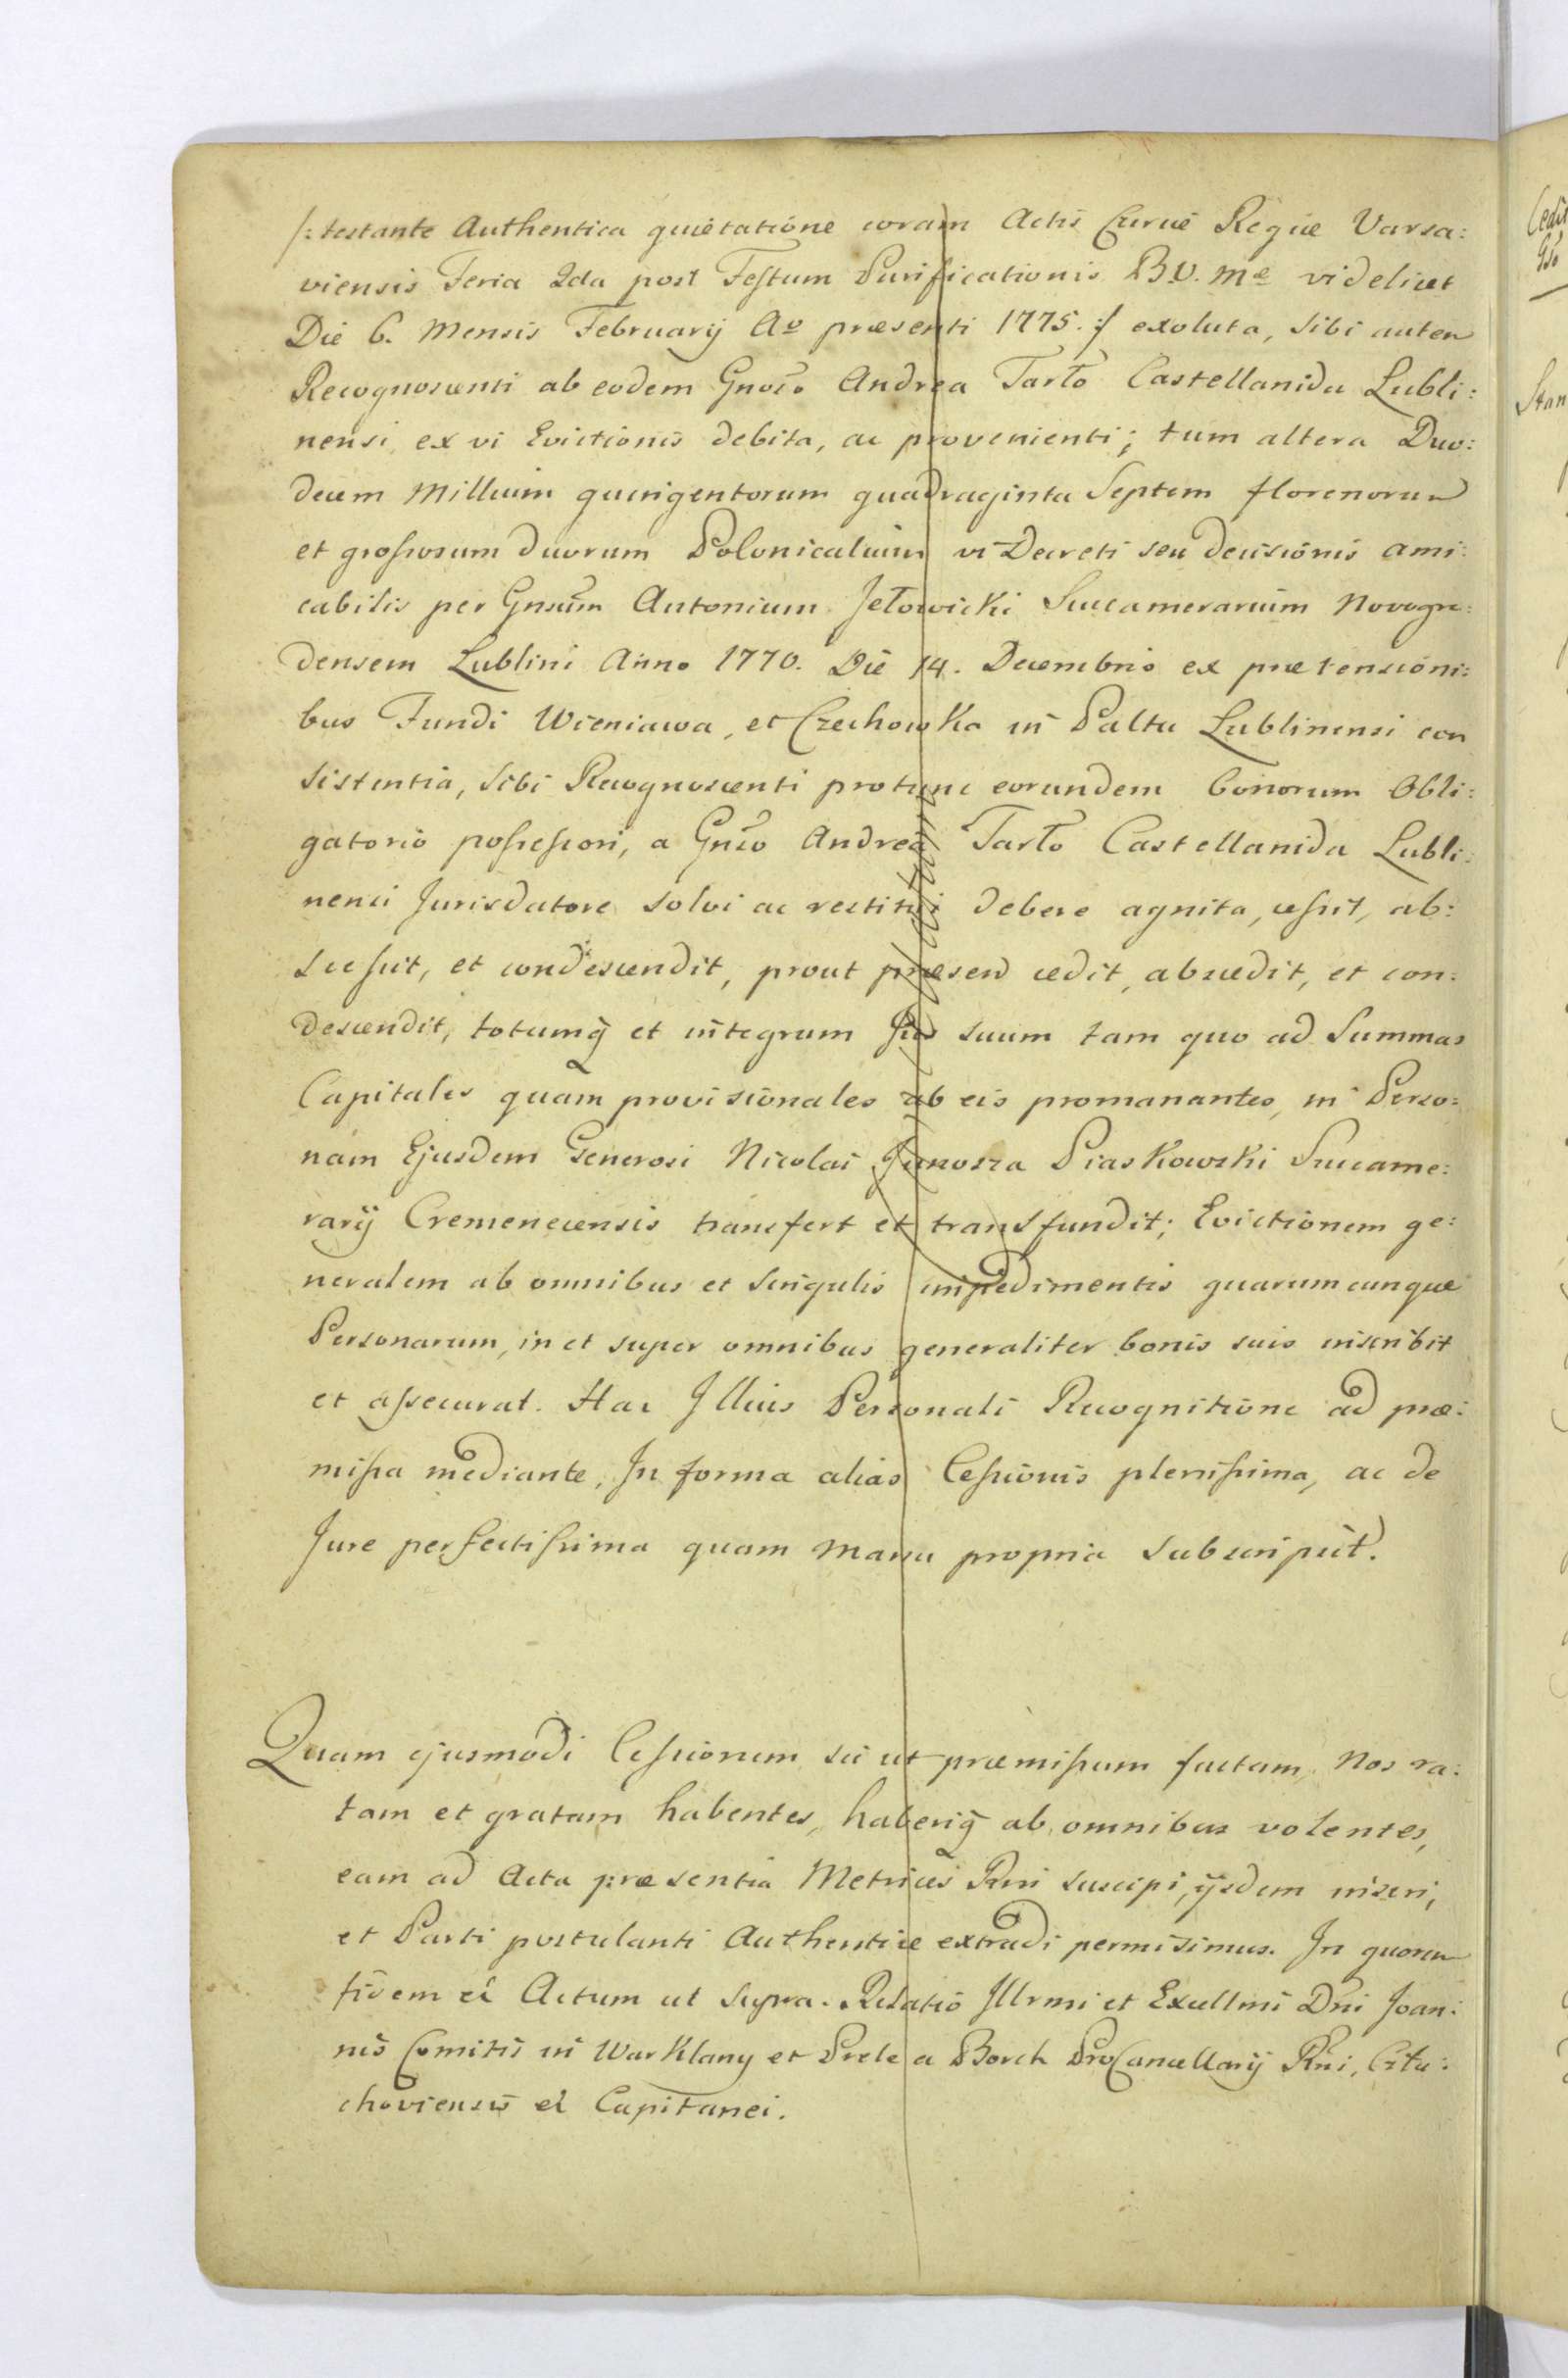 /: testante Authentica quietatione coram Actis Curiæ Regiæ Varsa:
viensis Feria 2da post Festum Purificationis B.V. Mæ videlicet
Die 6. Mensis Februarij Ao præsenti 1775. :/ exoluta, sibi autem
Recognoscenti ab eodem Gnoso Andrea Tarło Castellanida Lubli:
nensi, ex vi Evictionis debita, ac provenienti; tum altera Duo:
decem Millium quingentorum quadraginta Septem florenorum
et grossorum duorum Polonicalium vi Decreti seu decisionis ami:
cabilis per Gnsum Antonium Jełowicki Succamerarium Novogro:
densem Lublini Anno 1770. Die 14. Decembris ex prætensioni:
bus Fundi Wieniawa, et Czechowka in Palttu Lublinensi con
sistentia, sibi Recognoscenti protunc eorundem bonorum Obli:
gatorio possessori, a Gnso Andrea Tarło Castellanida Lubli:
nensi Jurisdatore solvi ac restitui debere agnita, cessit, ab:
scessit, et condescendit, prout præsen cedit, abscedit, et con:
descendit, totumq et integrum Jus suum tam quo ad Summas
Capitales quam provisionales ab eis promanantes, in Perso:
nam Ejusdem Generosi Nicolai Junosza Piaskowski Succame:
rarij Cremenecensis transfert et transfundit; Evictionem ge:
neralem ab omnibus et singulis impedimentis quarumcunque
Personarum, in et super omnibus generaliter bonis suis inscribit
et assecurat. Hac Illius Personali Recognitione ad præ:
missa mediante, In forma alias Cessionis plenissima, ac de
Jure perfectissima quam manu propria subscripsit.
Quam ejusmodi Cessionem sic ut præmissum factam, Nos ra:
tam et gratam habentes, haberiq ab omnibus volentes,
eam ad Acta præsentia Metrices Rni suscipi, ijsdem inseri,
et Parti postulanti Authentice extradi permisimus. In quorum
fidem et Actum ut supra. Relatio Illrmi et Excellmi Dni Joan:
nis Comitis in Warklany et Prele a Borch ProCancellarij Rni, Litu:
choviensis et Capitanei.